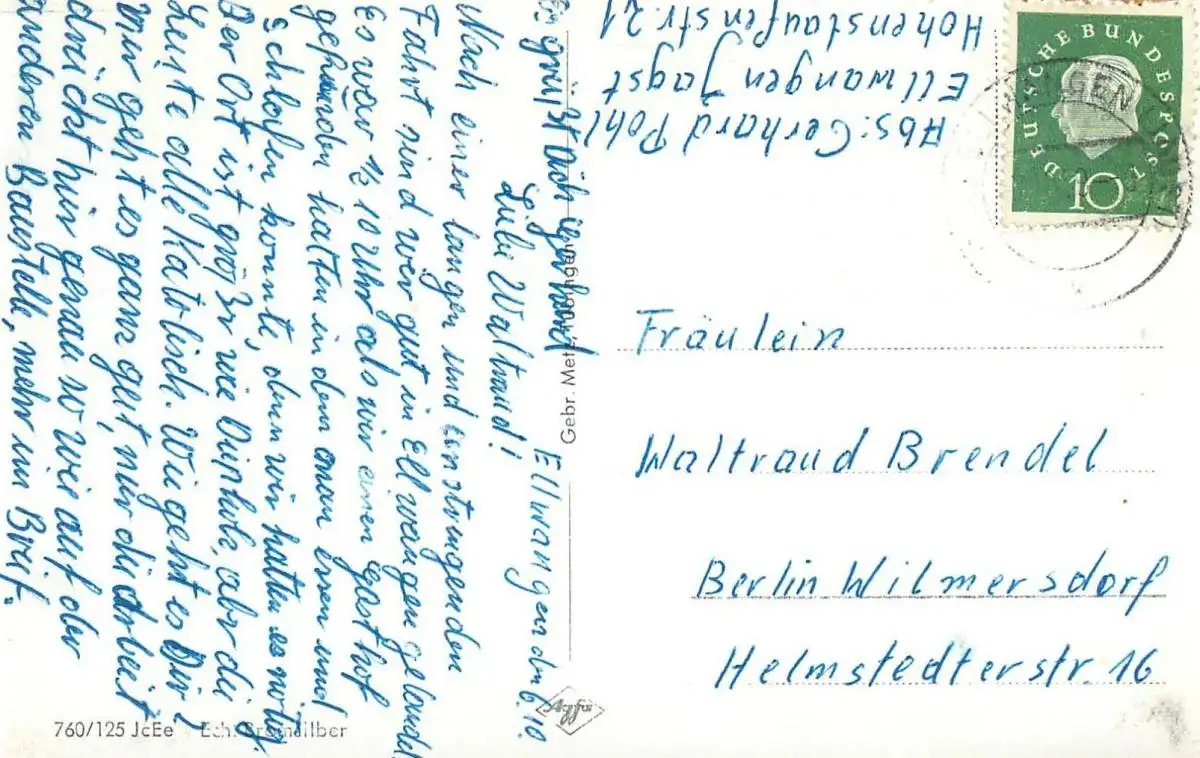 Ellwangen den 6.10.
Liebe Waltraud!
Nach einer langen und anstrengenden
Fahrt sind wir gut in Ellwangen gelandet
Es wär ½ 10 Uhr als wir einen Gasthof
gefunden hatten in dem man essen und
schlafen konnte, denn wir hatten es nötig.
Der Ort ist größr wie Diepholz, aber die
Leute alle Katolisch. Wie geht es Dir?
Mir geht es ganz gut, nur die Arbeit
drückt hir genau so wie auf der
anderen Baustelle, mehr im Brief.
Es grüßt Dich Gerhard
Abs: Gerhard Pohl
Ellwangen Jagst
Hohenstaufenstr. 21
DEUTSCHE BUNDESPOST
10
Fräulein
Waltraud Brendel
Berlin Wilmersdorf
Helmstedterstr. 16
Gebr. Metz, Tübingen
Agfa
760/125 JcEe Echt Bromsilber